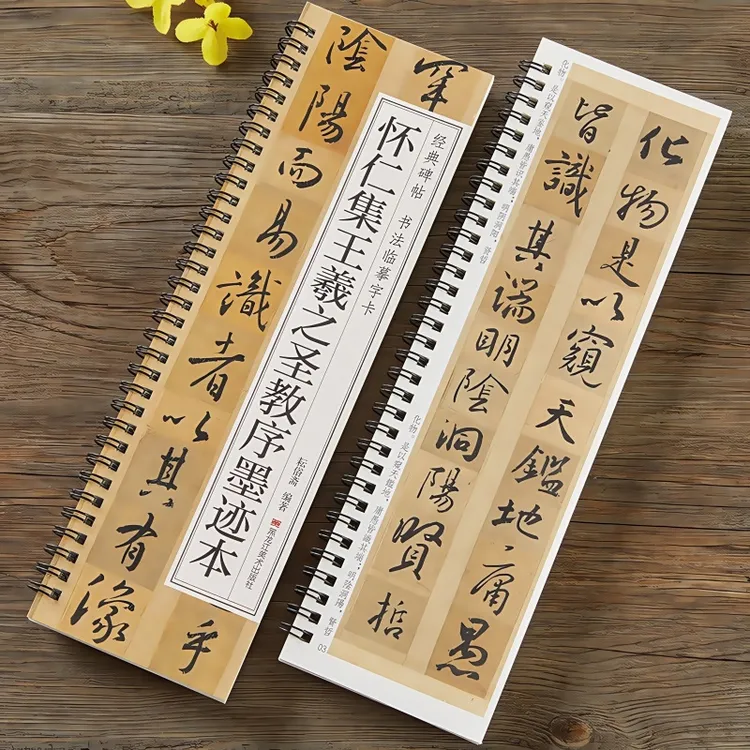 罕
乎
陰陽而易識者以其有像
经典碑帖 书法临摹字卡
怀仁集王羲之圣教序墨迹本
耘俗斋 编著
黑龙江美术出版社
化物是以窺天鑑地庸愚
皆識其端明陰洞陽賢哲
化物。是以窥天鉴地，庸愚皆识其端；明阴洞阳，贤哲
化物。是以窺天鑑地，庸愚皆識其端；明陰洞陽，賢哲
03